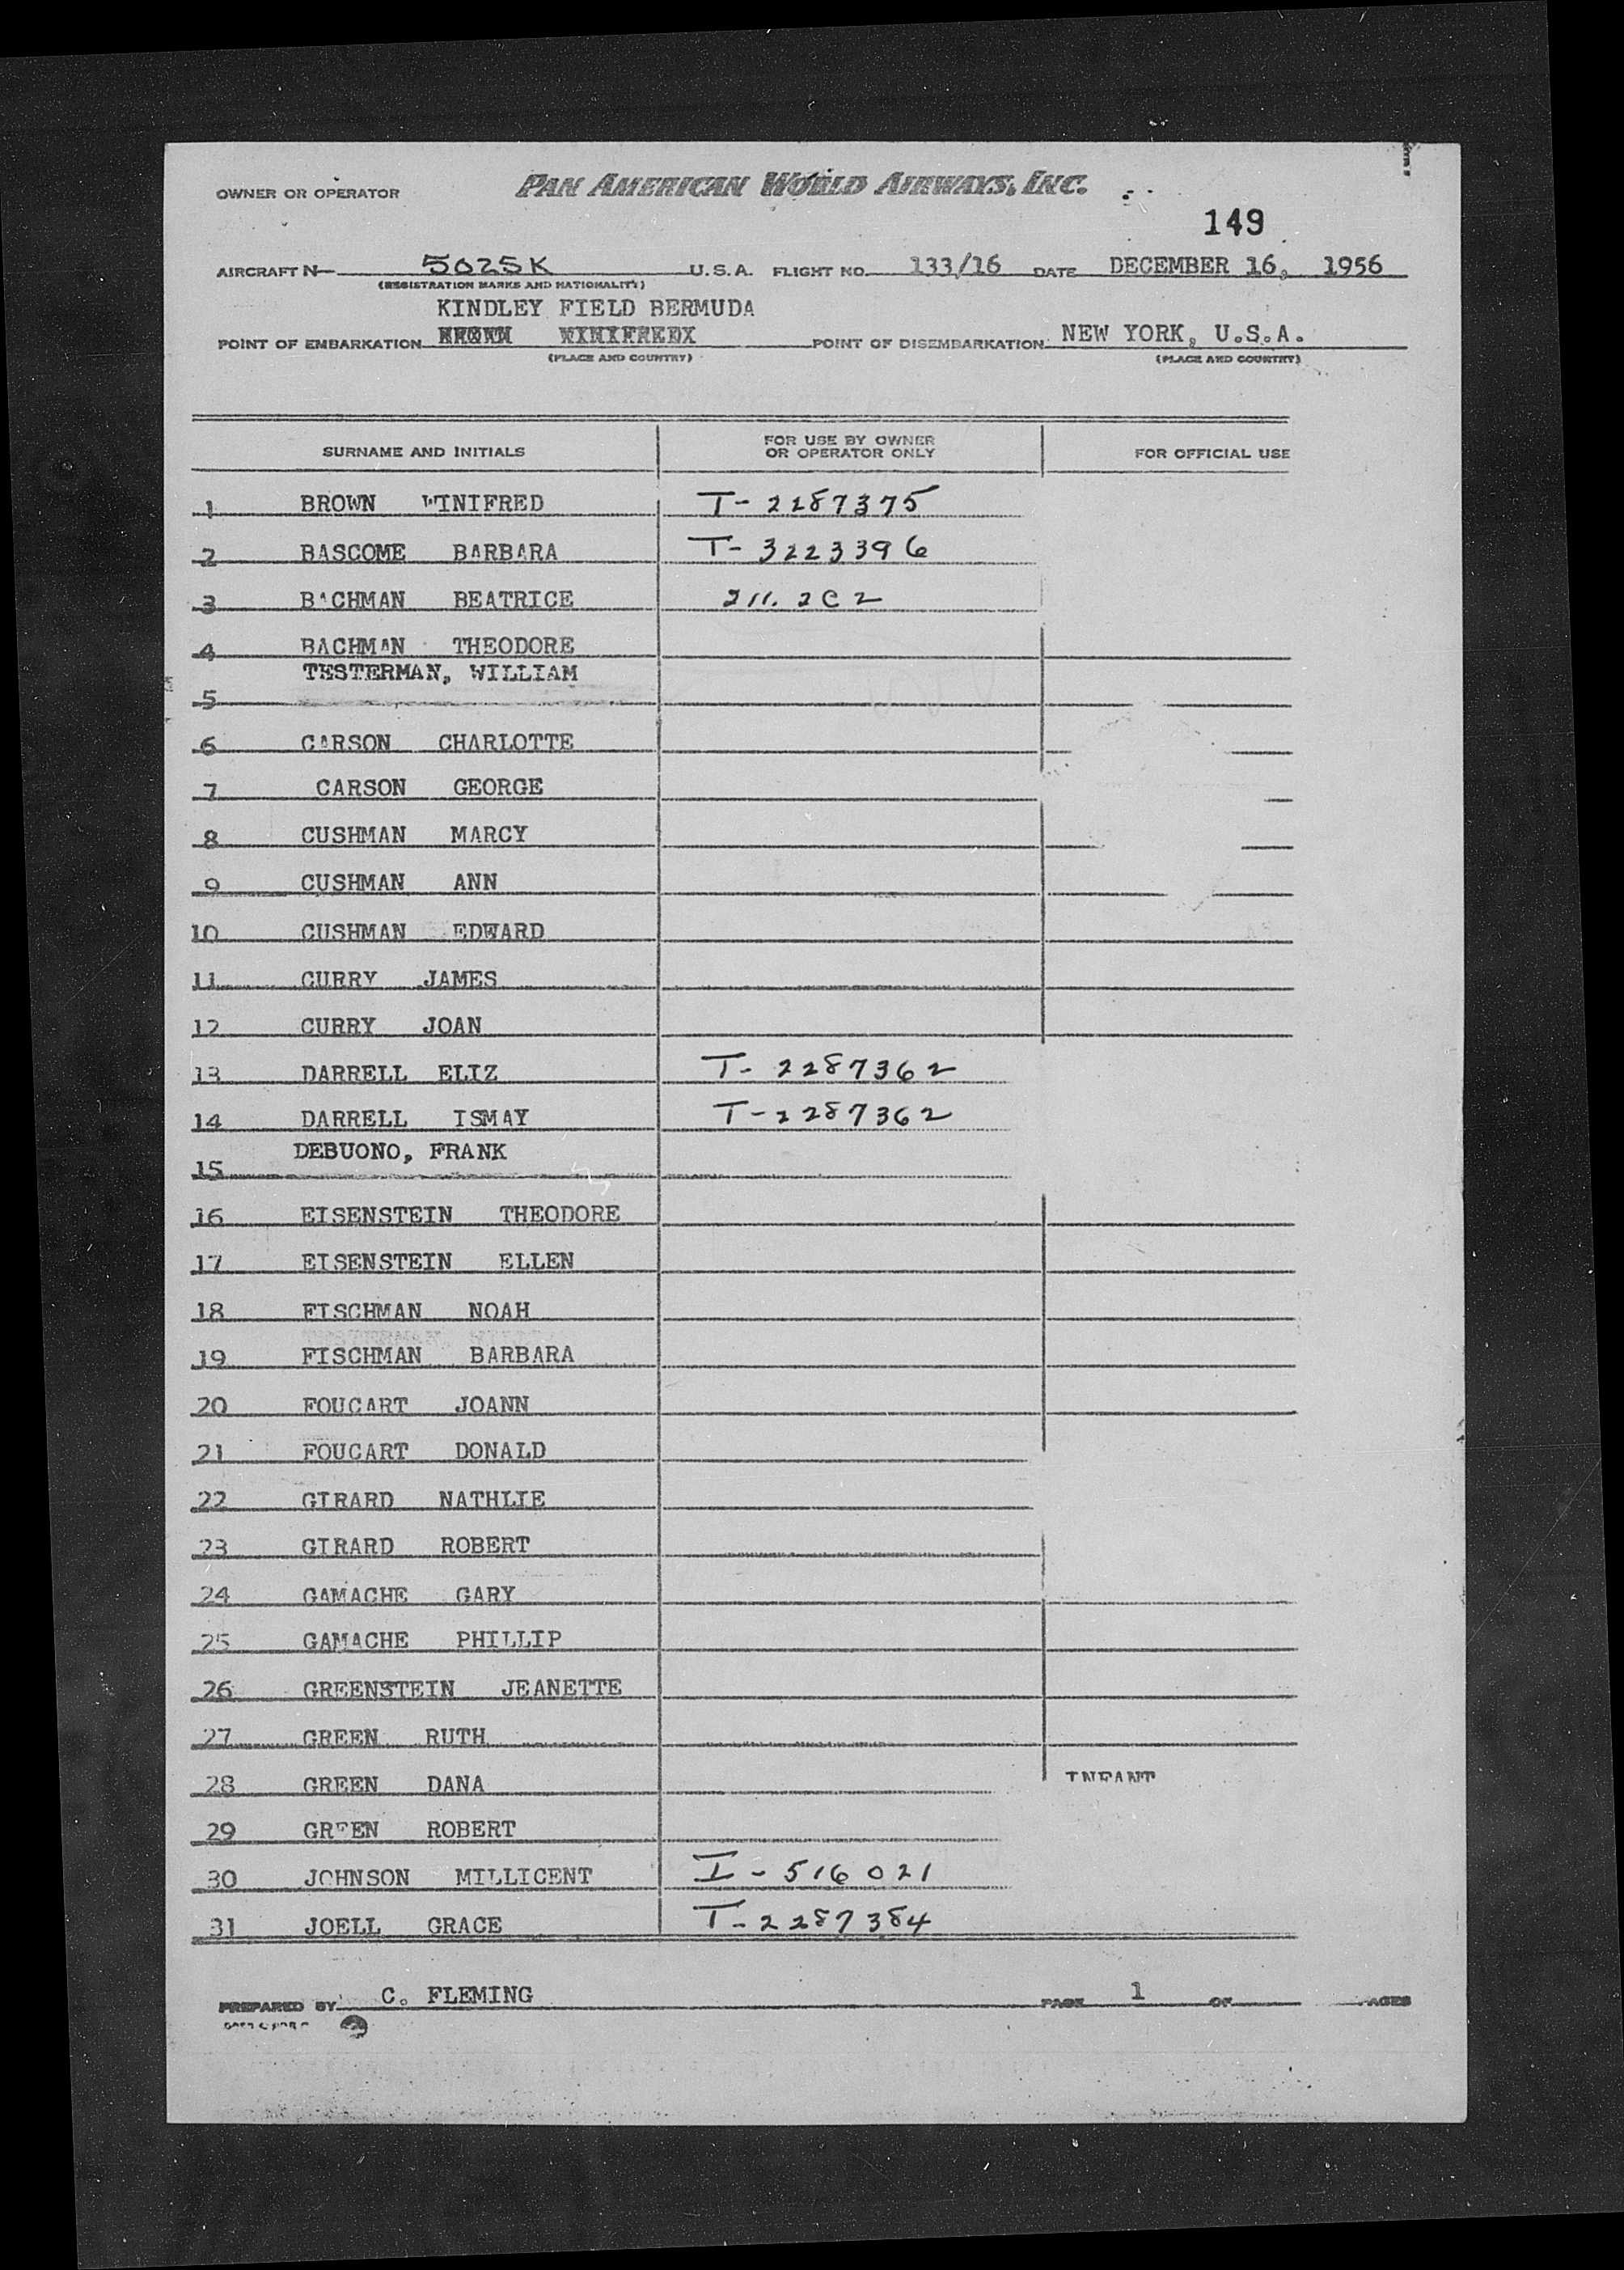 OWNER OR OPERATOR PAN AMERICAN WORLD AIRWAYS, INC.
149
AIRCRAFT N 5025K U.S.A. FLIGHT NO. 133/16 DATE DECEMBER 16, 1956
(REGISTRATION MARKS AND NATIONALITY)
KINDLEY FIELD BERMUDA
POINT OF EMBARKATION POINT OF DISEMBARKATION NEW YORK, U.S.A.
(PLACE AND COUNTRY) (PLACE AND COUNTRY)
SURNAME AND INITIALS FOR USE BY OWNER OR OPERATOR ONLY FOR OFFICIAL USE
1 BROWN WINIFRED T-2287375
2 BASCOME BARBARA T-3223396
3 BACHMAN BEATRICE 211.2C2
4 BACHMAN THEODORE
TESTERMAN, WILLIAM
5
6 CARSON CHARLOTTE
7 CARSON GEORGE
8 CUSHMAN MARCY
9 CUSHMAN ANN
10 CUSHMAN EDWARD
11 CURRY JAMES
12 CURRY JOAN
13 DARRELL ELIZ T-2287362
14 DARRELL ISMAY T-2287362
DEBUONO, FRANK
15
16 EISENSTEIN THEODORE
17 EISENSTEIN ELLEN
18 FISCHMAN NOAH
19 FISCHMAN BARBARA
20 FOUCART JOANN
21 FOUCART DONALD
22 GIRARD NATHLIE
23 GIRARD ROBERT
24 GAMACHE GARY
25 GAMACHE PHILLIP
26 GREENSTEIN JEANETTE
27 GREEN RUTH
28 GREEN DANA INFANT
29 GREEN ROBERT
30 JOHNSON MILLICENT I-516021
31 JOELL GRACE T-2287384
PREPARED BY C. FLEMING PAGE 1 OF PAGES